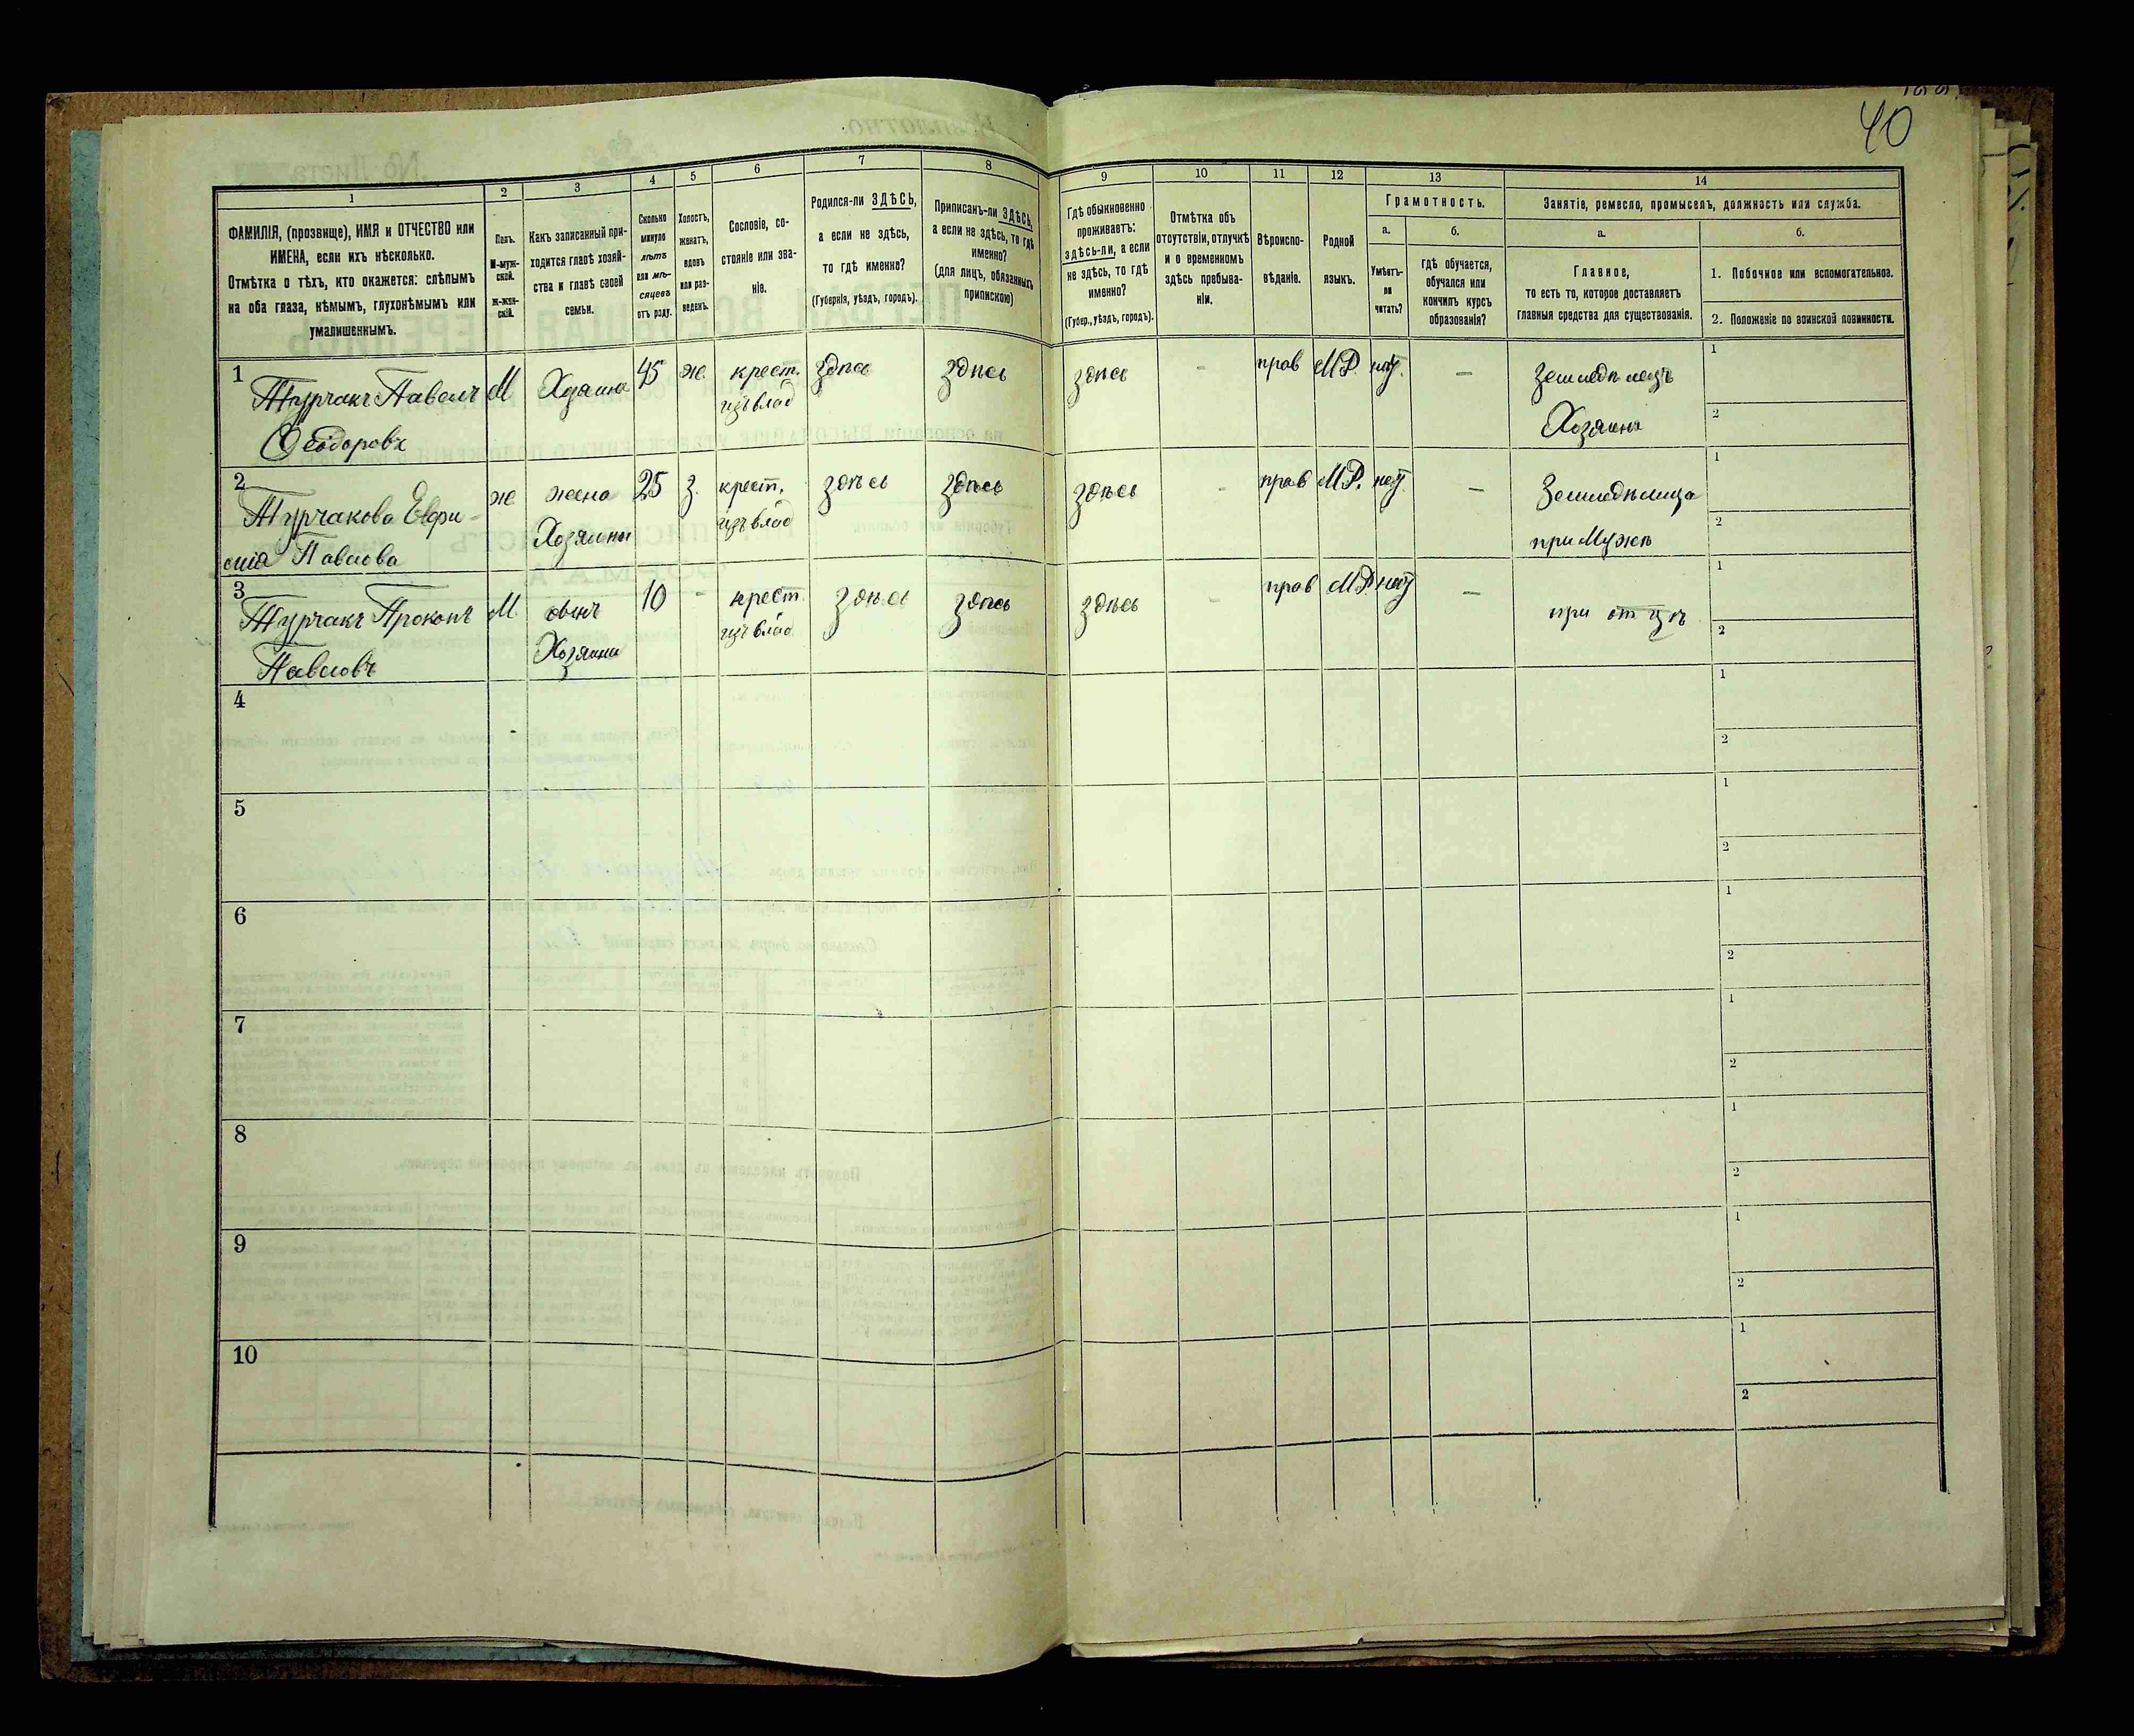 40
1
2
3
4
5
6
7
8
9
10
11
12
13
14
ФАМИЛІЯ, (прозвище), ИМЯ и ОТЧЕСТВО или
ИМЕНА, если ихъ нѣсколько.
Отмѣтка о тѣхъ, кто окажется: слѣпымъ
на оба глаза, нѣмымъ, глухонѣмымъ или
умалишеннымъ.
Полъ.
М-муж-
ской.
ж-жен-
скій.
Какъ записанный при-
ходится главѣ хозяй-
ства и главѣ своей
семьи.
Сколько
минуло
лѣтъ
или мѣ-
сяцевъ
отъ роду.
Холостъ,
женатъ,
вдовъ
или раз-
веденъ.
Сословіе, со-
стояніе или зва-
ніе.
Родился-ли ЗДѢСЬ,
а если не здѣсь,
то гдѣ именно?
(Губернія, уѣздъ, городъ).
Приписанъ-ли ЗДѢСЬ,
а если не здѣсь, то гдѣ
именно?
(для лицъ, обязанныхъ
припискою)
Гдѣ обыкновенно
проживаетъ:
здѣсь-ли, а если
не здѣсь, то гдѣ
именно?
(Губер., уѣздъ, городъ).
Отмѣтка объ
отсутствіи, отлучкѣ
и о временномъ
здѣсь пребыва-
ніи.
Вѣроиспо-
вѣданіе.
Родной
языкъ.
Грамотность.
а.
Умѣетъ-
ли
читать?
б.
гдѣ обучается,
обучался или
кончилъ курсъ
образованія?
Занятіе, ремесло, промыселъ, должность или служба.
а.
Главное,
то есть то, которое доставляетъ
главныя средства для существованія.
б.
1. Побочное или вспомогательное.
2. Положеніе по воинской повинности.
1
Турчакъ Павелъ М Хозяинъ 45 ж. крест. здѣсь здѣсь здѣсь - прав М.Р. нѣт. — Земледѣлецъ 1
Ѳеодоровъ изъ влад Хозяинъ 2
2
Турчакова Евфи- ж жена 25 з. крест. здѣсь здѣсь здѣсь - прав М.Р. нѣт. — Земледѣлица 1
сиія Павлова Хозяина изъ влад при Мужѣ 2
3
Турчакъ Прокопъ М сынъ 10 - крест. здѣсь здѣсь здѣсь - прав М.Р. нѣт — при отцѣ 1
Павловъ Хозяина изъ влад 2
4 1
2
5 1
2
6 1
2
7 1
2
8 1
2
9 1
2
10 1
2